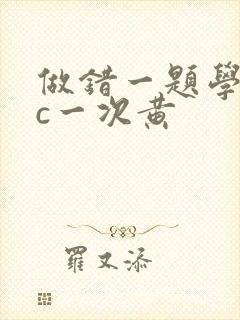 做錯一題學
c一次黃
羅又添